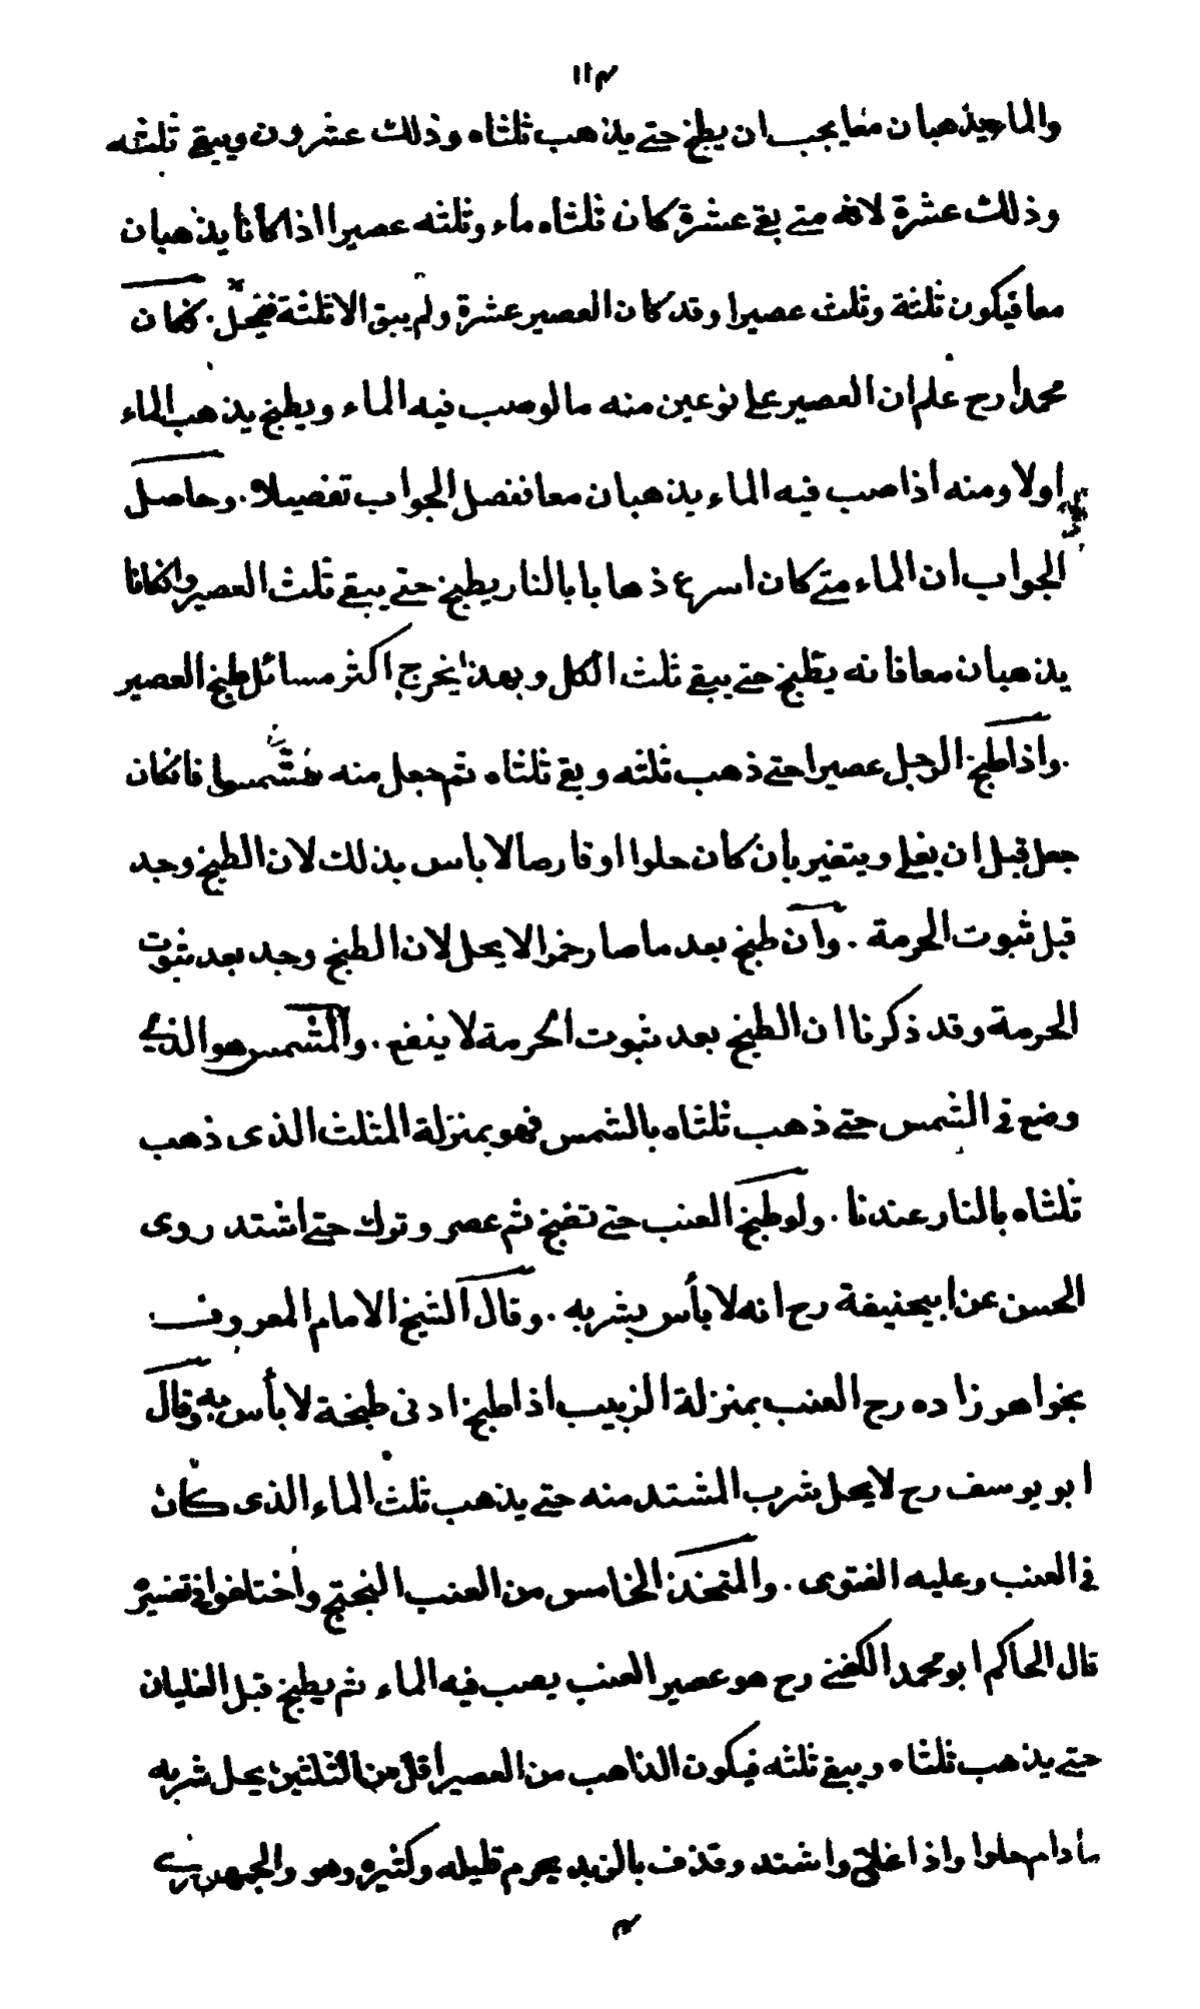 ١١٣
والماء يذهبان معا يجب ان يطبخ حتى يذهب ثلثاه وذلك عشرون ويبقى ثلثه
وذلك عشرة لانه متى بقى عشرة كان ثلثاه ماء وثلثه عصيرا اذا كانا يذهبان
معا فيكون ثلثة وثلث عصيرا وقد كان العصير عشرة ولم يبق الا ثلثة فيحل. فكان
محمدا رح علم ان العصير على نوعين منه ما لو صب فيه الماء ويطبخ يذهب الماء
اولا ومنه اذا صب فيه الماء يذهبان معا ففصل الجواب تفصيلا. وحاصل
الجواب ان الماء متى كان اسرع ذهابا بالنار يطبخ حتى يبقى ثلث العصير وانكانا
يذهبان معا فانه يطبخ حتى يبقى ثلث الكل وبهذا يخرج اكثر مسائل طبخ العصير
.واذا طبخ الرجل عصيرا حتى ذهب ثلثه وبقى ثلثاه ثم جعل منه مشمسا فانكان
جعل قبل ان يغلى ويتغير بأن كان حلوا او قارصا لا باس بذلك لان الطبخ وجد
قبل ثبوت الحرمة. وان طبخ بعد ما صار خمرا لا يحل لان الطبخ وجد بعد ثبوت
الحرمة وقد ذكرنا ان الطبخ بعد ثبوت الحرمة لا ينفع. والمشمس هو الذى
وضع فى الشمس حتى ذهب ثلثاه بالشمس فهو بمنزلة المثلث الذى ذهب
ثلثاه بالنار عندنا. ولو طبخ العنب حتى تفبخ ثم عصر وترك حتى اشتد روى
الحسن عن ابيحنيفة رح انه لا بأس بشربه. وقال الشيخ الامام المعروف
بخواهر زاده رح العنب بمنزلة الزبيب اذا طبخ ادنى طبخة لا بأس به وقال
ابو يوسف رح لا يحل شرب المشتد منه حتى يذهب ثلث الماء الذى كان
فى العنب وعليه الفتوى. والمتخذ الخامس من العنب البختج واختلفوا فى تفسيره
قال الحاكم ابو محمد الكفنى رح هو عصير العنب يصب فيه الماء ثم يطبخ قبل الغليان
حتى يذهب ثلثاه ويبقى ثلثه فيكون الذاهب من العصير اقل من الثلثين يحل شربه
مادام حلوا واذا غلى واشتد وقذف بالزبد يحرم قليله وكثيره وهو والجمهورى